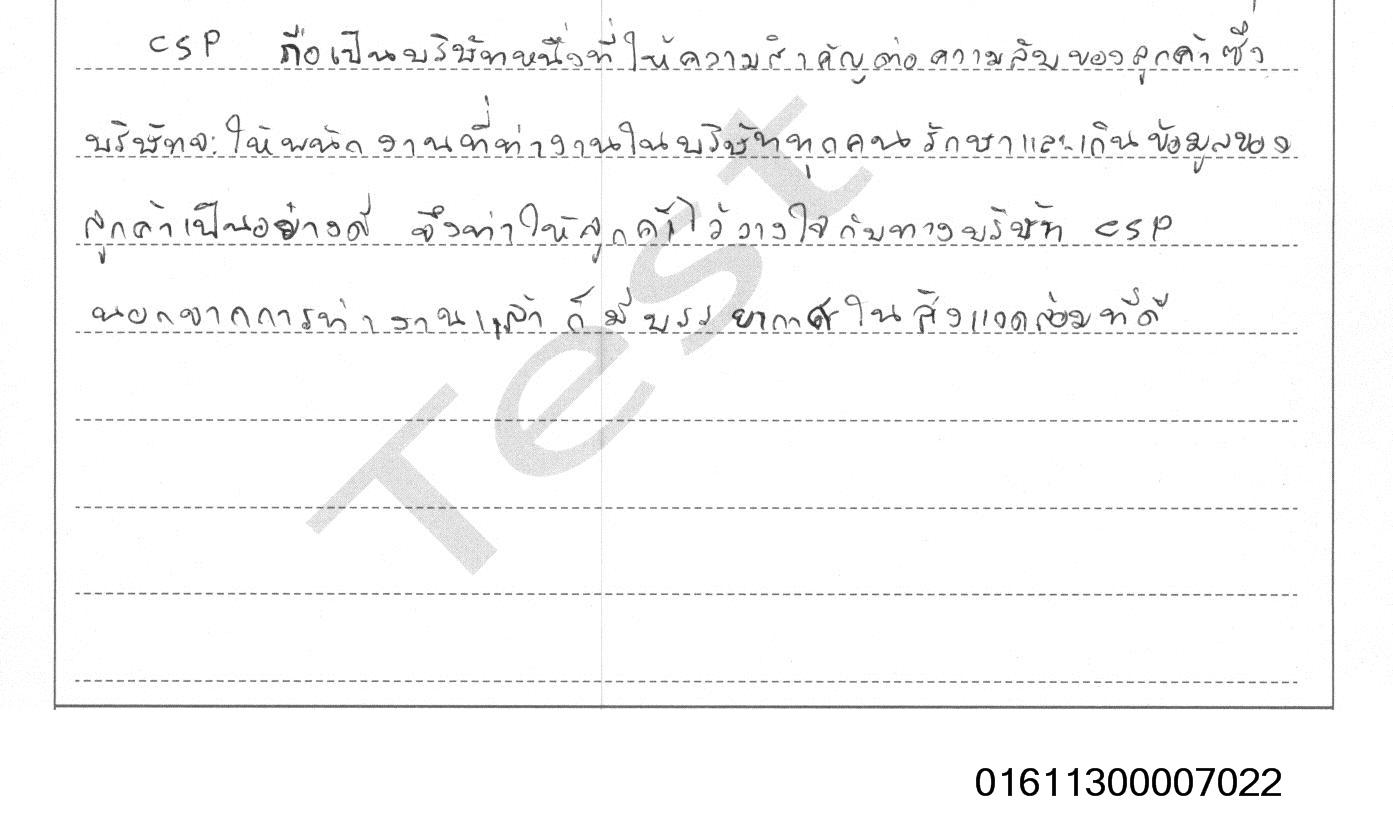 CSP ถือเป็นบริษัทหนึ่งที่ให้ความสำคัญต่อความลับของลูกค้าซึ่ง
บริษัทจะให้พนักงานที่ทำงานในบริษัททุกคนรักษาและเก็บข้อมูลของ
ลูกค้าเป็นอย่างดี จึงทำให้ลูกค้าไว้วางใจกับทางบริษัท CSP
นอกจากการทำงานแล้วก็มีบรรยากาศในสิ่งแวดล้อมที่ดี
Test
01611300007022